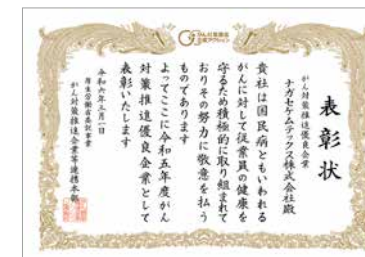 がん対策推進
企業アクション
表彰状
がん対策推進優良企業
ナガセケムテックス株式会社殿
貴社は国民病ともいわれる
がんに対して従業員の健康を
守るため積極的に取り組まれて
おりその努力に敬意を払う
ものであります
よってここに令和五年度がん
対策推進優良企業として
表彰いたします
令和六年三月一日
厚生労働省委託事業
がん対策推進企業等連携本部